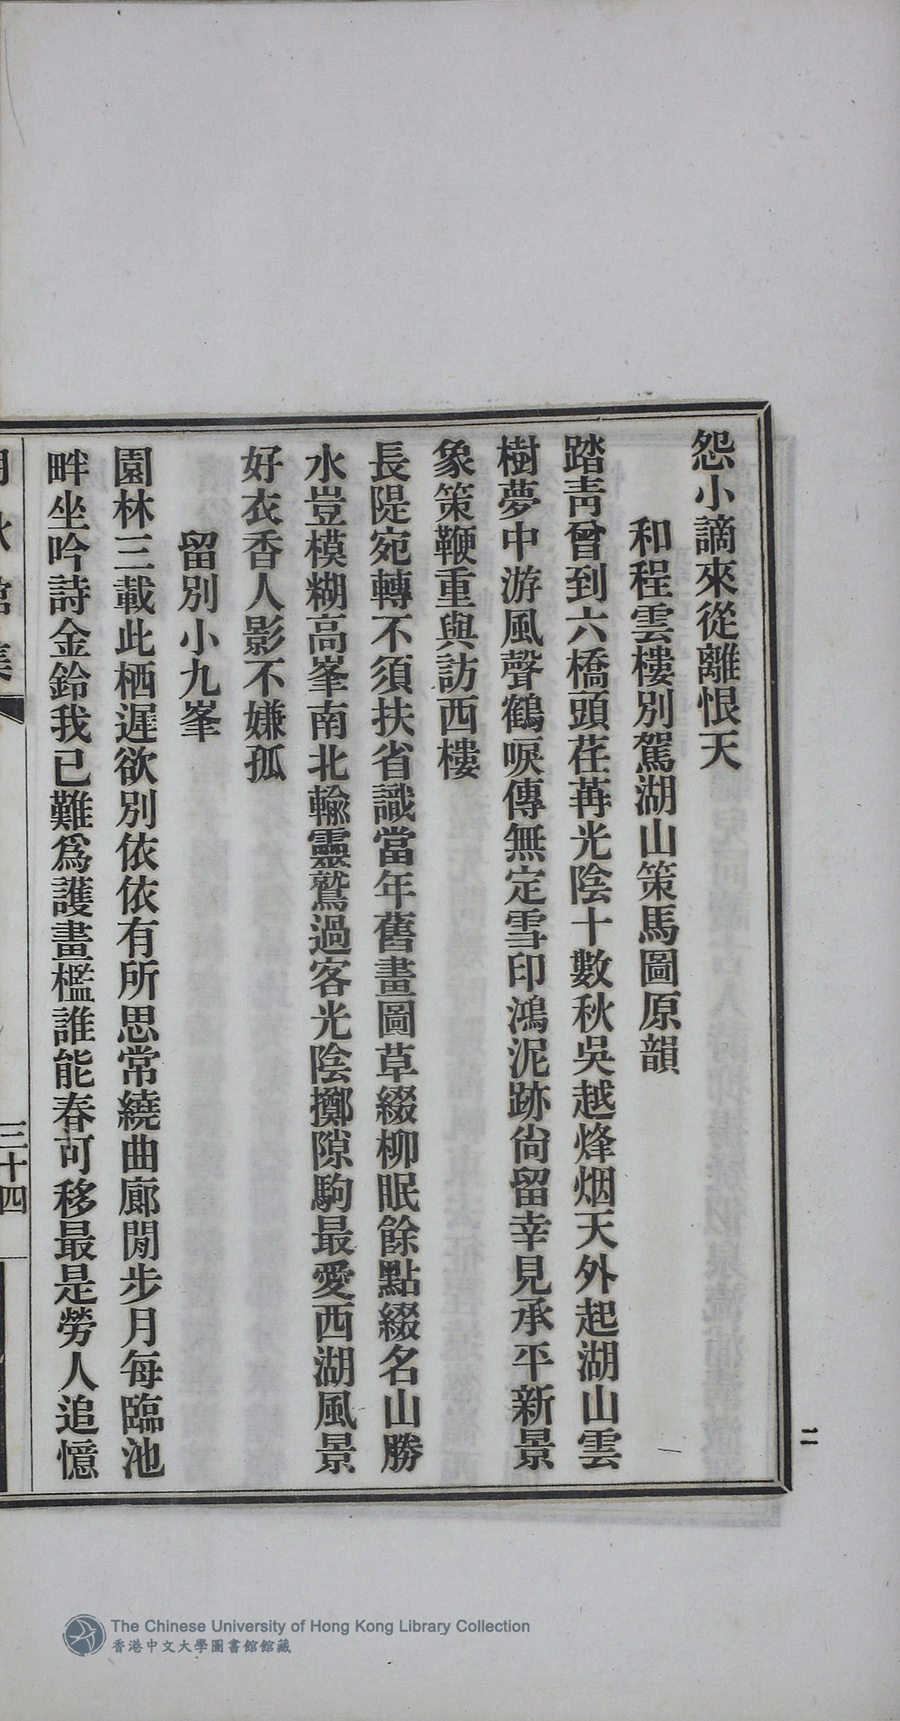 怨小謫來從離恨天
和程雲樓別駕湖山策馬圖原韻
踏靑曾到六橋頭荏苒光陰十數秋吳越烽烟天外起湖山雲
樹夢中游風聲鶴唳傳無定雪印鴻泥跡尙留幸見承平新景
象策鞭重與訪西樓
長隄宛轉不須扶省識當年舊畫圖草綴柳眠餘點綴名山勝
水豈模糊高峯南北輸靈鷲過客光陰擲隙駒最愛西湖風景
好衣香人影不嫌孤
留別小九峯
園林三載此栖遲欲別依依有所思常繞曲廊閒步月每臨池
畔坐吟詩金鈴我已難爲護畫檻誰能春可移最是勞人追憶
三十四
二
The Chinese University of Hong Kong Library Collection
香港中文大學圖書館館藏